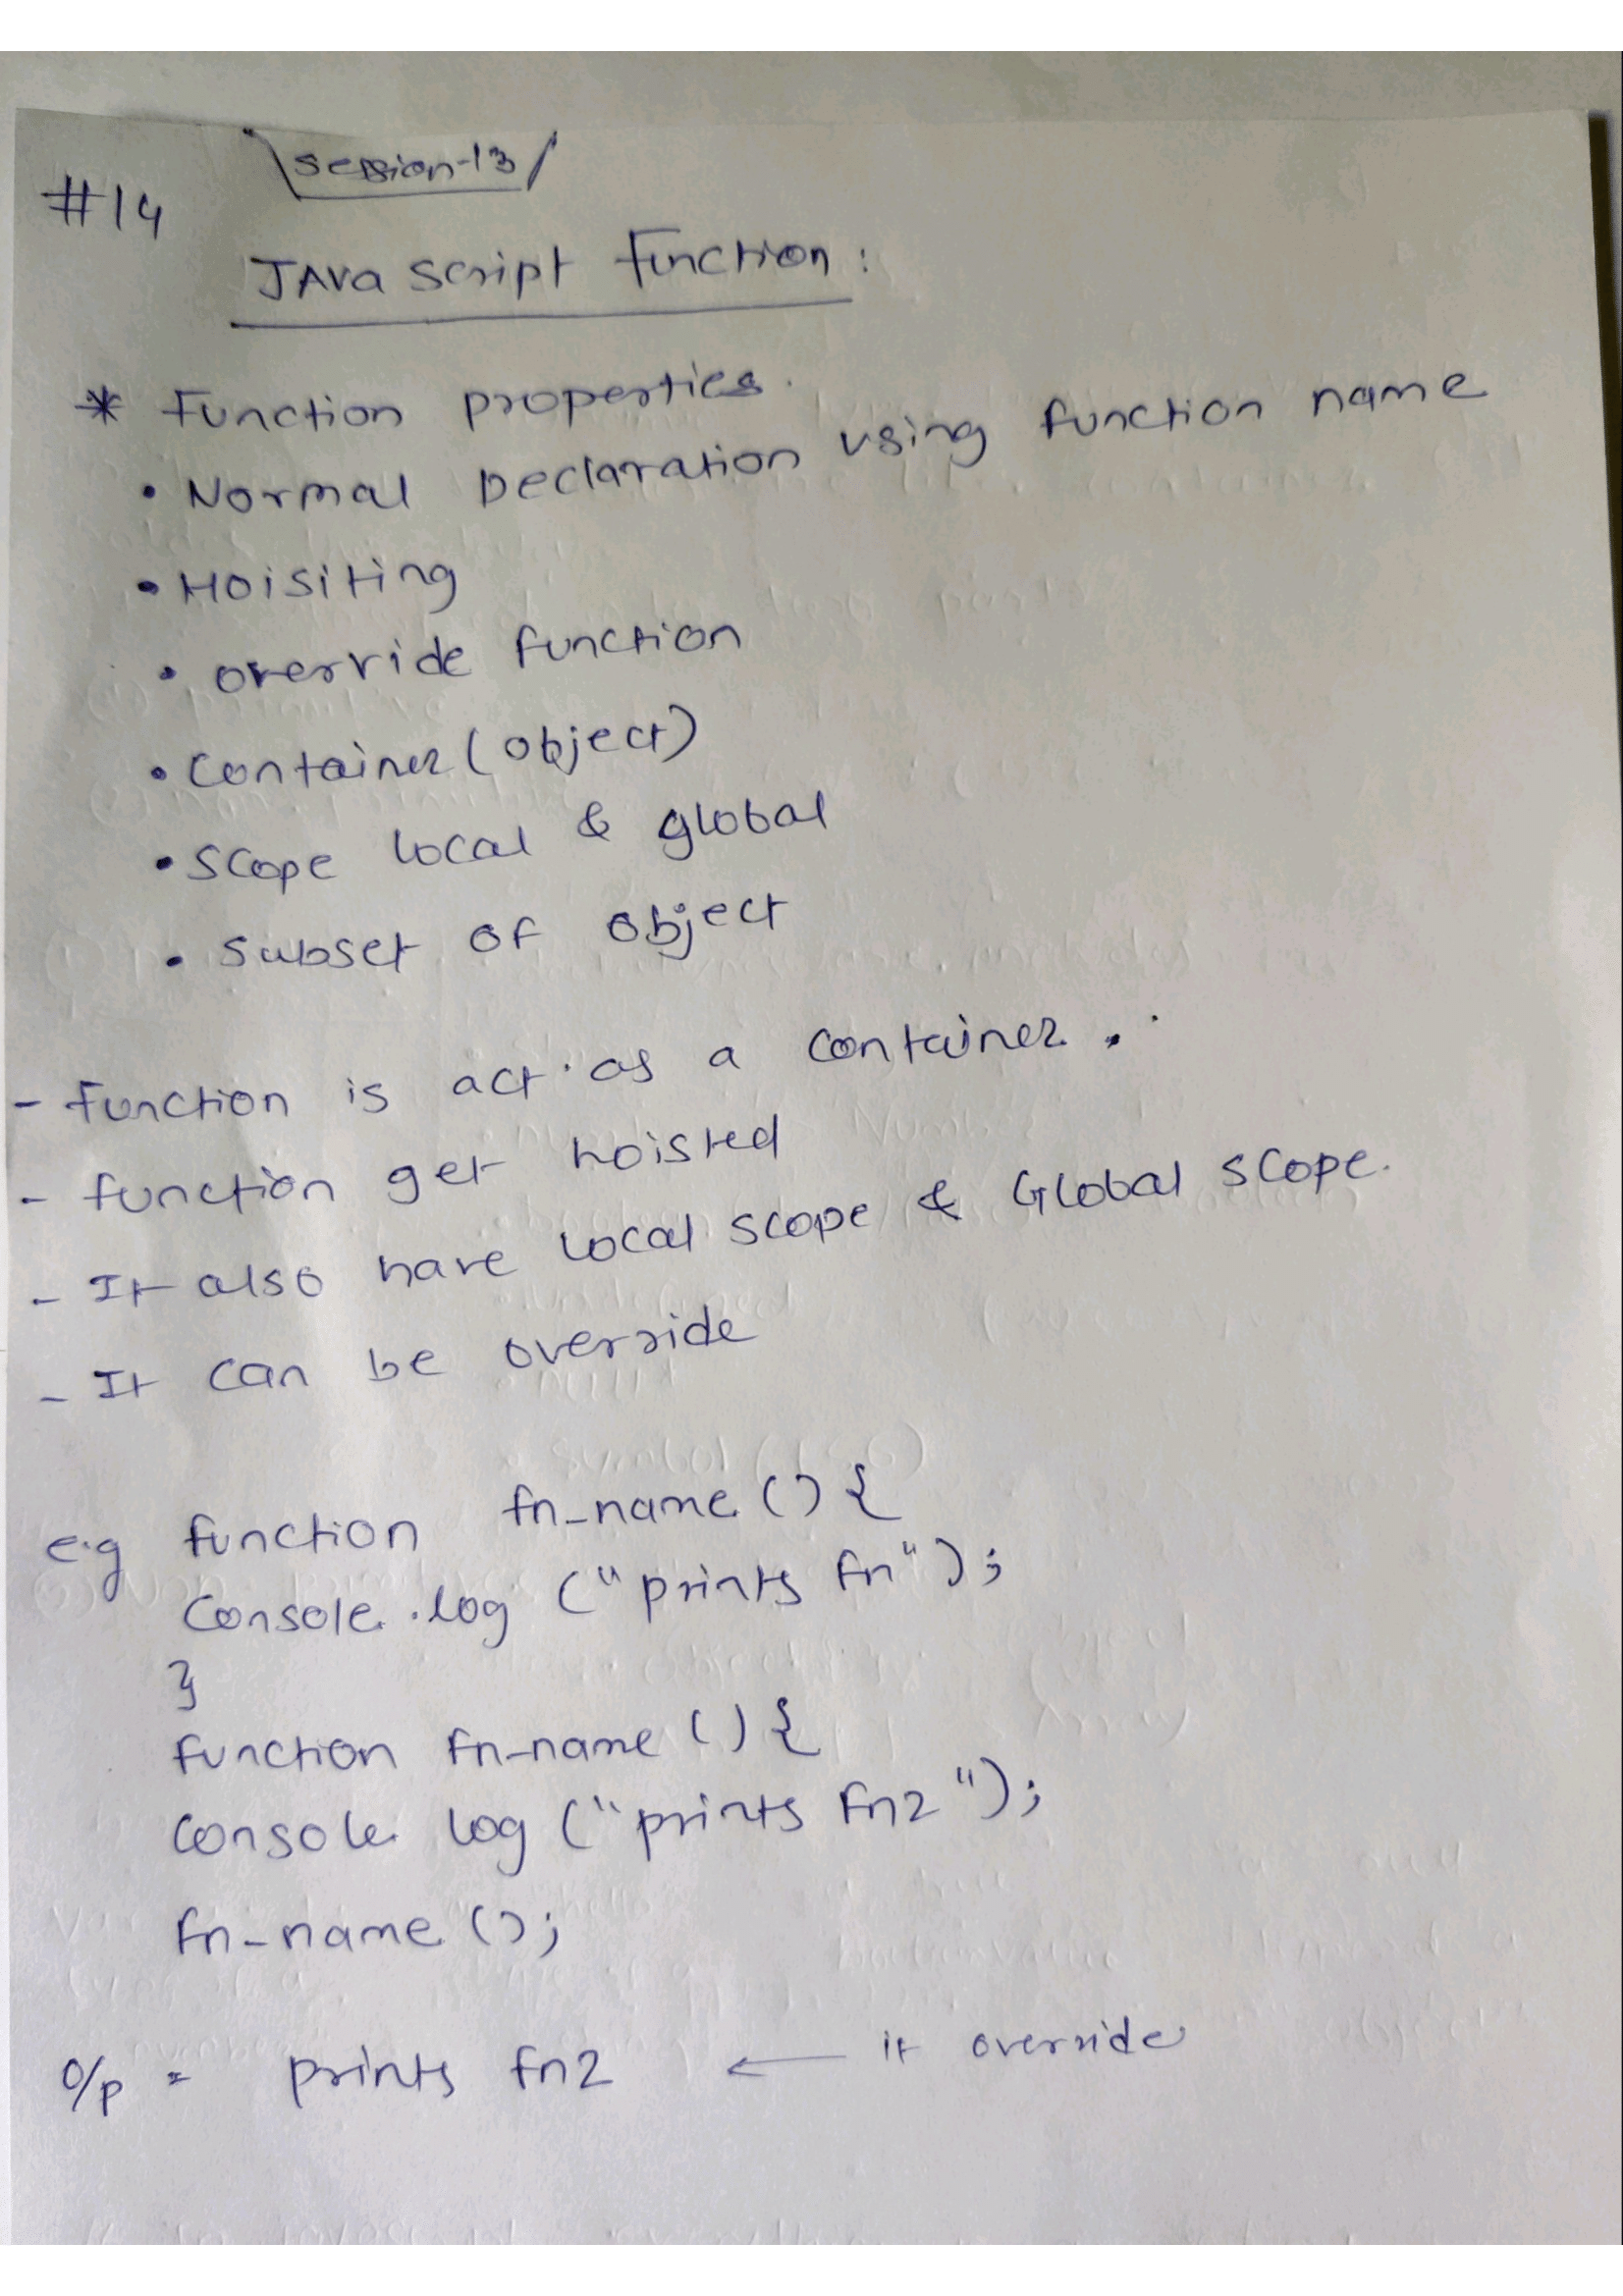 Session-13
#14
JAVA Script Function :
* Function properties.
• Normal Declaration using function name
• Hoisiting
• override function
• Container (object)
• Scope local & global
• Subset of object
- Function is act as a container.
- function get hoisted
- It also have local scope & Global scope.
- It can be override
e.g function fn_name () {
Console.log ("prints fn");
}
function fn-name () {
Console log ("prints fn2");
fn-name ();
O/p = prints fn2 ← it override